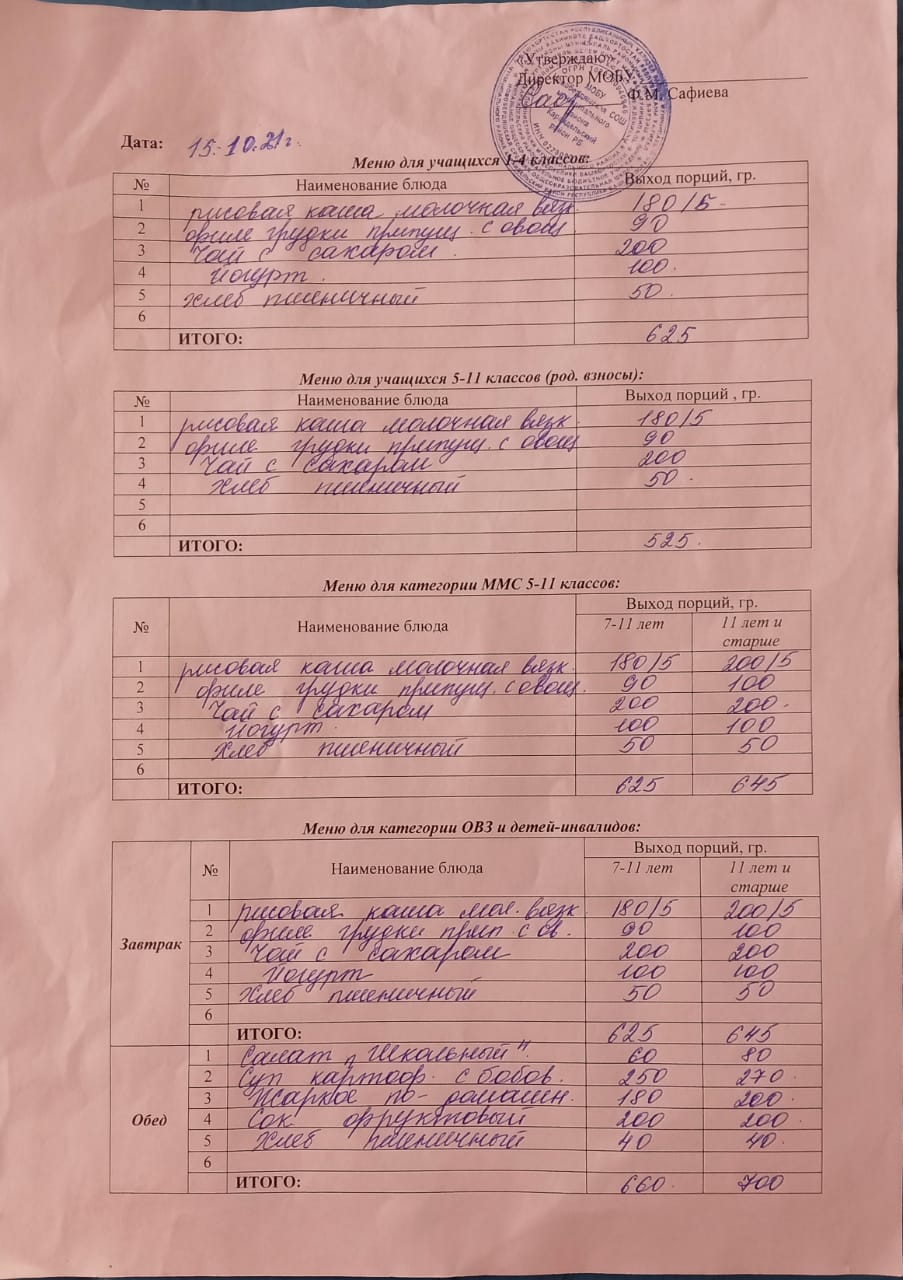 «Утверждаю»
Директор МОБУ
Ф.М. Сафиева
Дата: 15.10.21г.
Меню для учащихся 1-4 классов:
№ Наименование блюда Выход порций, гр.
1 рисовая каша молочная вязк. 180/5
2 филе грудки припущ. с овощ 90
3 Чай с сахаром. 200
4 Йогурт. 100.
5 хлеб пшеничный 50.
6
ИТОГО: 625
Меню для учащихся 5-11 классов (род. взносы):
№ Наименование блюда Выход порций , гр.
1 рисовая каша молочная вязк. 180/5
2 филе грудки припущ. с овощ 90
3 Чай с сахаром 200
4 хлеб пшеничный 50.
5
6
ИТОГО: 525.
Меню для категории ММС 5-11 классов:
№ Наименование блюда Выход порций, гр.
7-11 лет 11 лет и старше
1 рисовая каша молочная вязк. 180/5 200/5
2 филе грудки припущ. с овощ. 90 100
3 Чай с сахаром 200 200.
4 Йогурт. 100 100
5 Хлеб пшеничный 50 50
6
ИТОГО: 625 645
Меню для категории ОВЗ и детей-инвалидов:
№ Наименование блюда Выход порций, гр.
7-11 лет 11 лет и старше
Завтрак
1 рисовая каша мол. вязк. 180/5 200/5
2 филе грудки прип с ов. 90 100
3 Чай с сахаром 200 200
4 Йогурт 100 100
5 Хлеб пшеничный 50 50
6
ИТОГО: 625 645
Обед
1 Салат „Школьный". 60 80
2 Суп картоф. с бобов. 250 270.
3 Жаркое по-домашн. 180 200.
4 Сок фруктовый 200 200.
5 Хлеб пшеничный 40 40.
6
ИТОГО: 660. 700